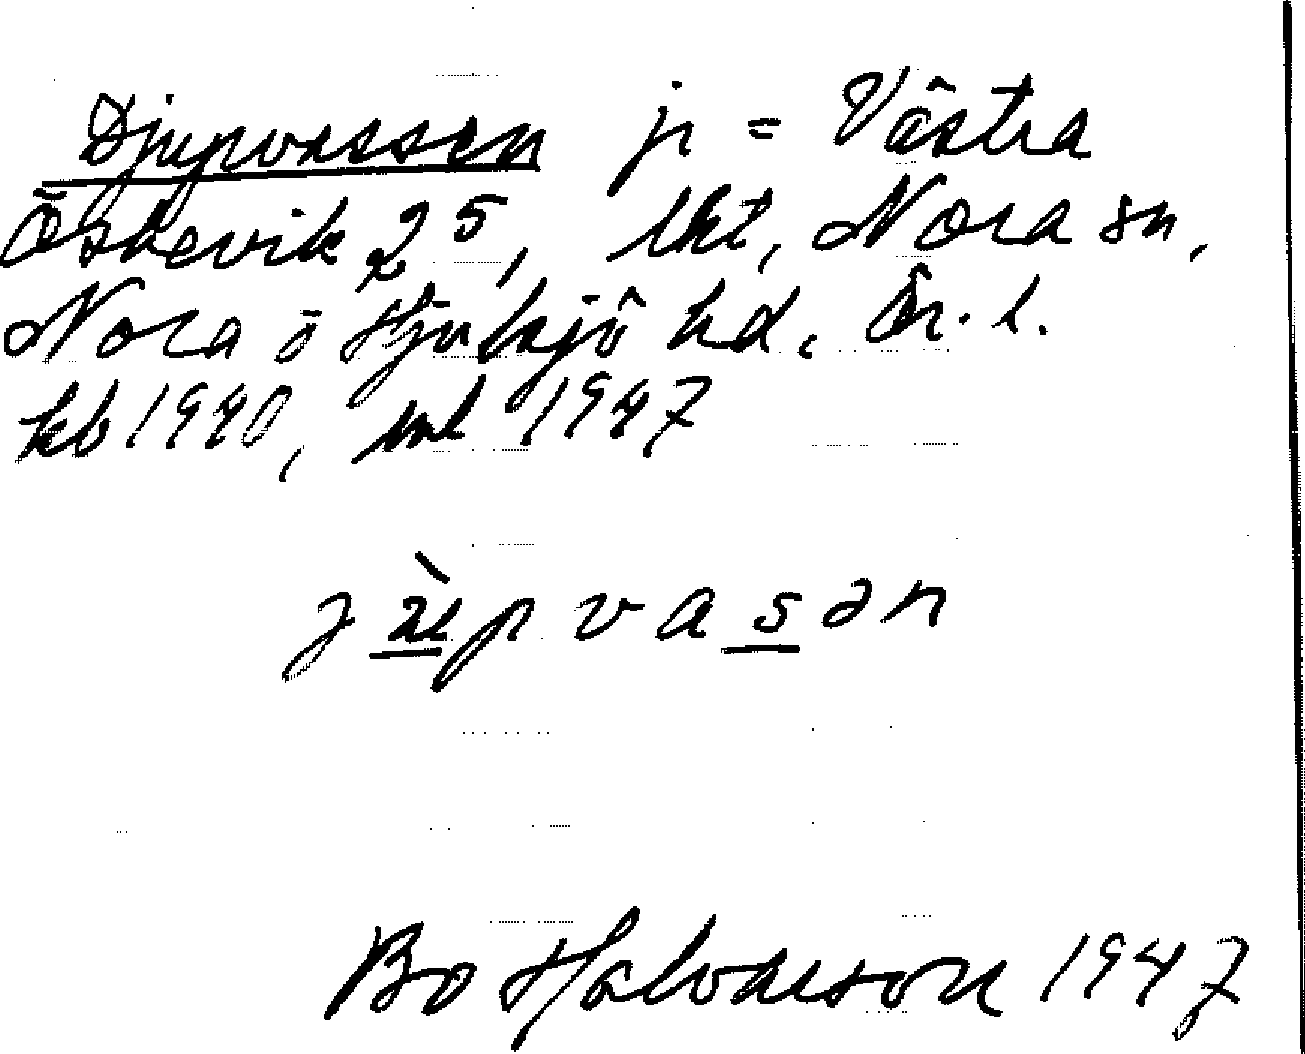 Djupvassen jr = Västra
Öskevik 2⁵, lht, Nora sn,
Nora o Hjulsjö hd. Ör. l.
kb 1940, ml 1947
Bo Halvarson 1947